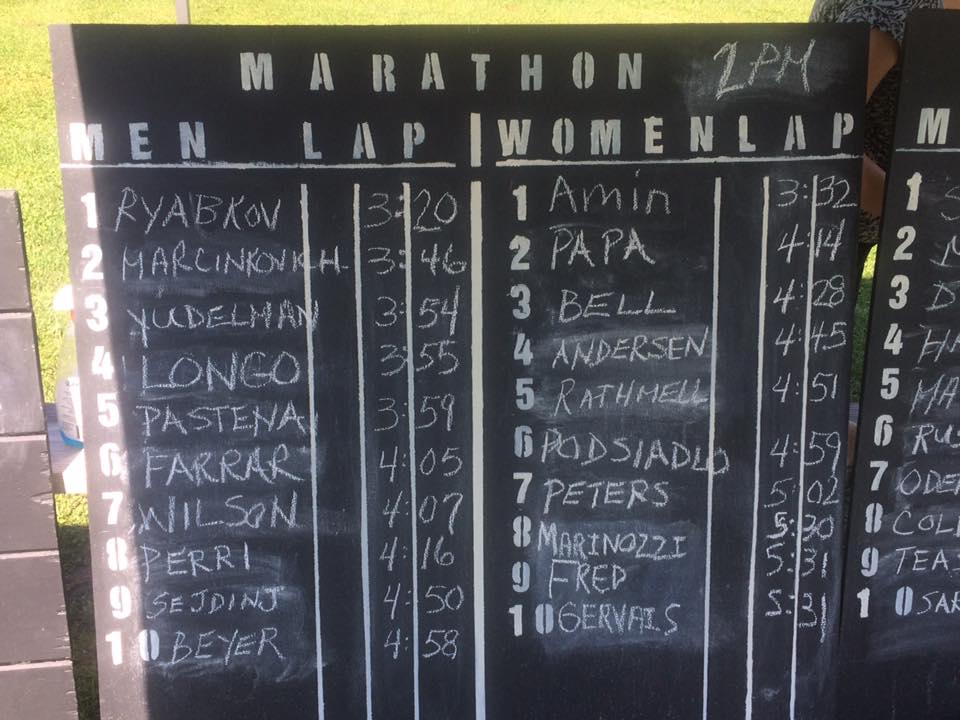 MARATHON 2PM
MEN LAP
1 RYABKOV 3:20
2 MARCINKOVICH 3:46
3 YUDELMAN 3:54
4 LONGO 3:55
5 PASTENA 3:59
6 FARRAR 4:05
7 WILSON 4:07
8 PERRI 4:16
9 SEJDINJ 4:50
10 BEYER 4:58
WOMEN LAP
1 Amin 3:32
2 PAPA 4:14
3 BELL 4:28
4 ANDERSEN 4:45
5 RATHMELL 4:51
6 PODSIADLO 4:59
7 PETERS 5:02
8 MARINOZZI 5:30
9 FRED 5:31
10 GERVAIS 5:31
M
1
2
3
4
5
6
7
8
9
10